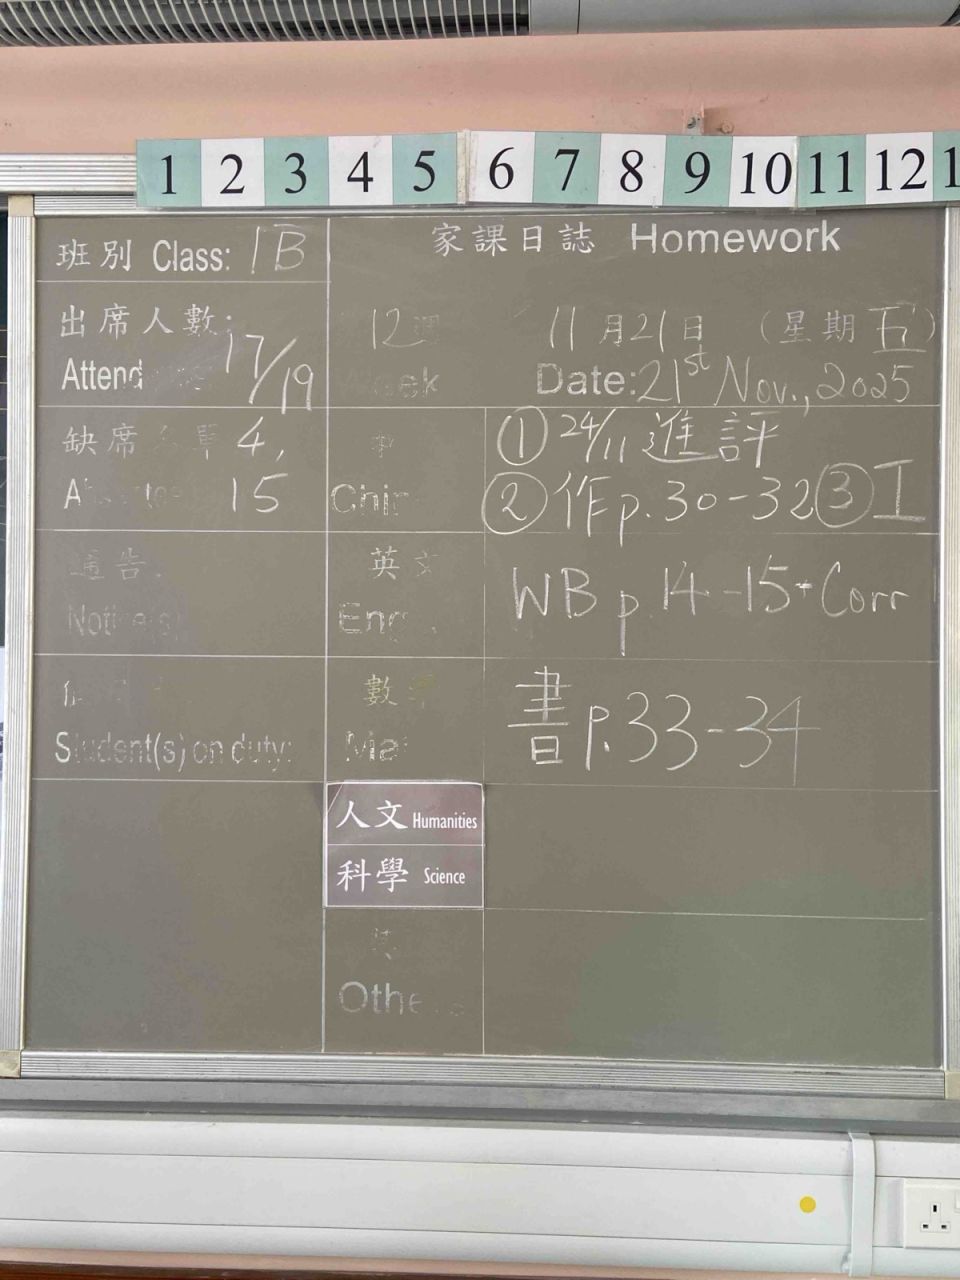 1 2 3 4 5 6 7 8 9 10 11 12 1
班別 Class: 1B
家課日誌 Homework
出席人數: 17/19
Attend
12週
Week
11月21日 (星期五)
Date: 21st Nov., 2025
缺席 單 4, 15
中
Chin
① 24/11 進評
② 作 p. 30-32 ③ I
通告
Notice(s)
英文
Eng
WB p. 14-15 + Corr
Student(s) on duty:
數學
Ma
書 p. 33-34
人文 Humanities
科學 Science
其
Othe